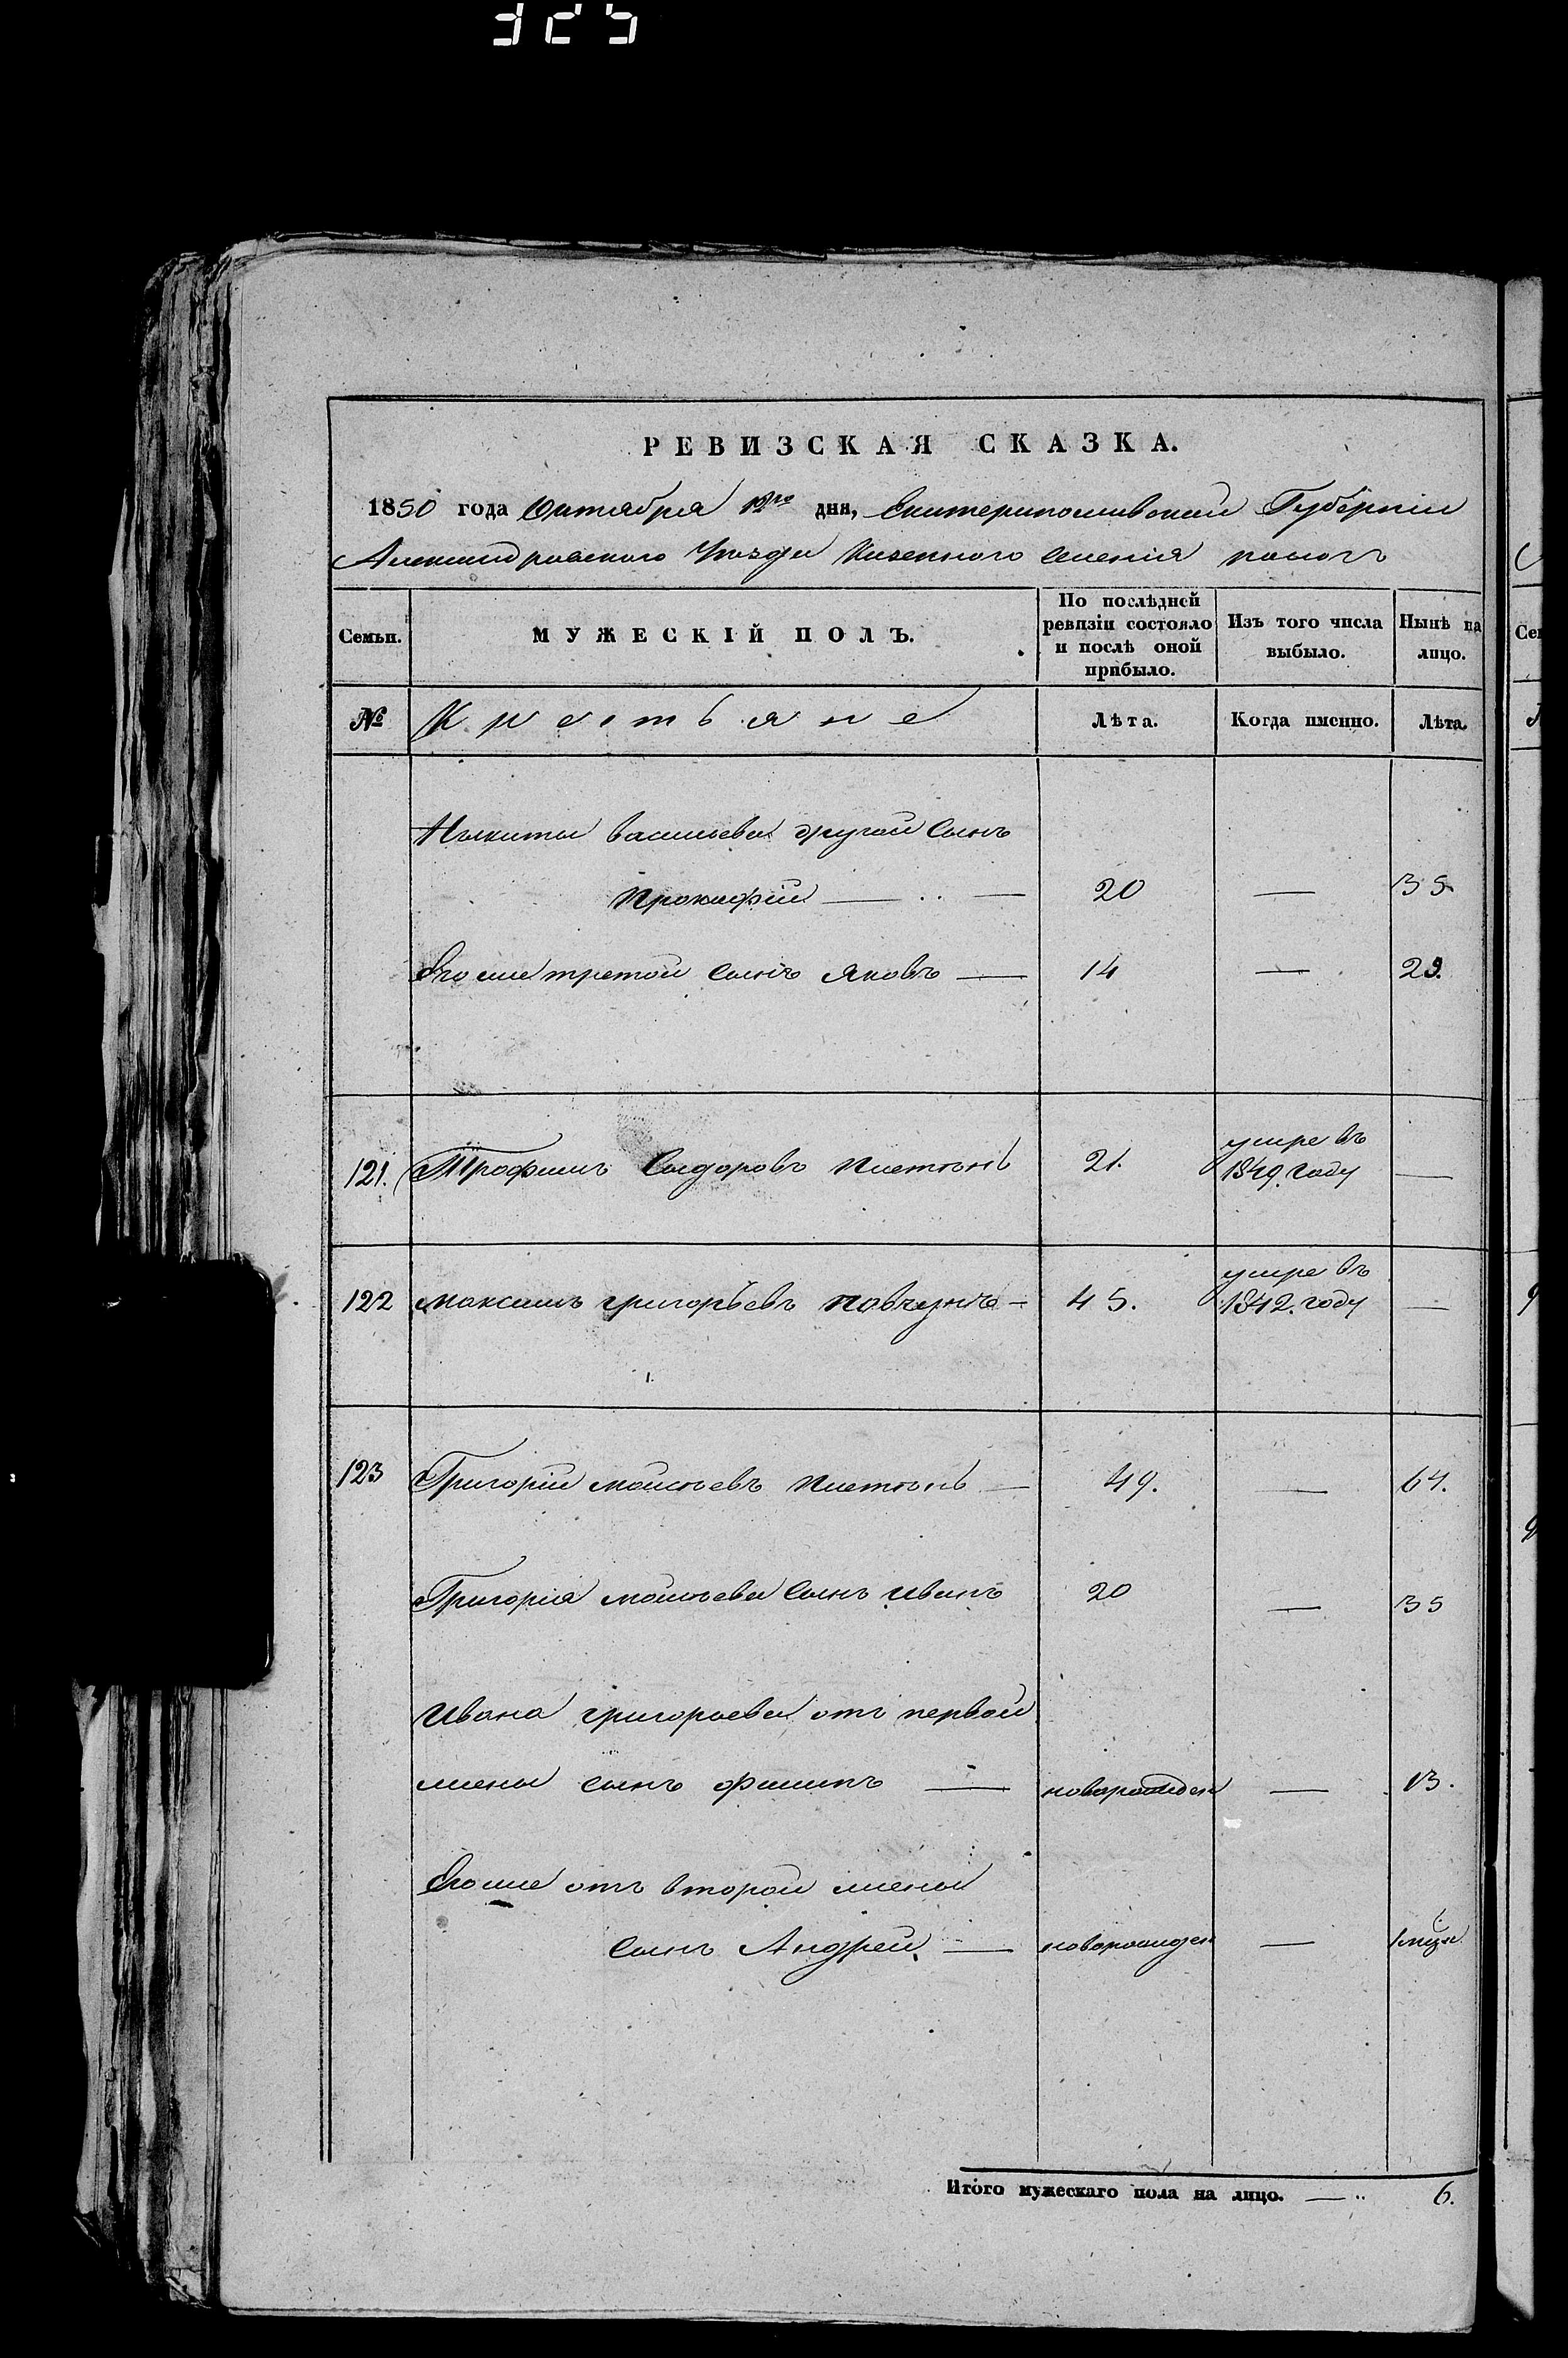 325
РЕВИЗСКАЯ СКАЗКА.
1850 года Октября 12го дня, Екатеринославской Губерніи
Александровского Уезда Казенного Селенія пологъ
Семьи. МУЖЕСКІЙ ПОЛЪ. По послѣдней ревизіи состояло и послѣ оной прибыло. Изъ того числа выбыло. Нынѣ на лицо.
№ Крестьяне Лѣта. Когда именно. Лѣта.
Никиты васильева другой Сынъ
Прокофій — 20 — 35
Его же третой Сынъ Яковъ — 14 — 29.
121. Трофимъ Сидоровъ 21. умре въ 1849. году —
122 Максимъ григорьевъ повчунъ — 45. умре въ 1842. году —
123 Григорій моисѣевъ — 49. — 64.
Григорія моисѣева Сынъ иванъ 20 — 35
Ивана григорьева отъ первой
жены сынъ филипъ — новорожден — 13.
Его же отъ второй жены
Сынъ Андрей — новорожден — 
Итого мужескаго пола на лицо. — 6.